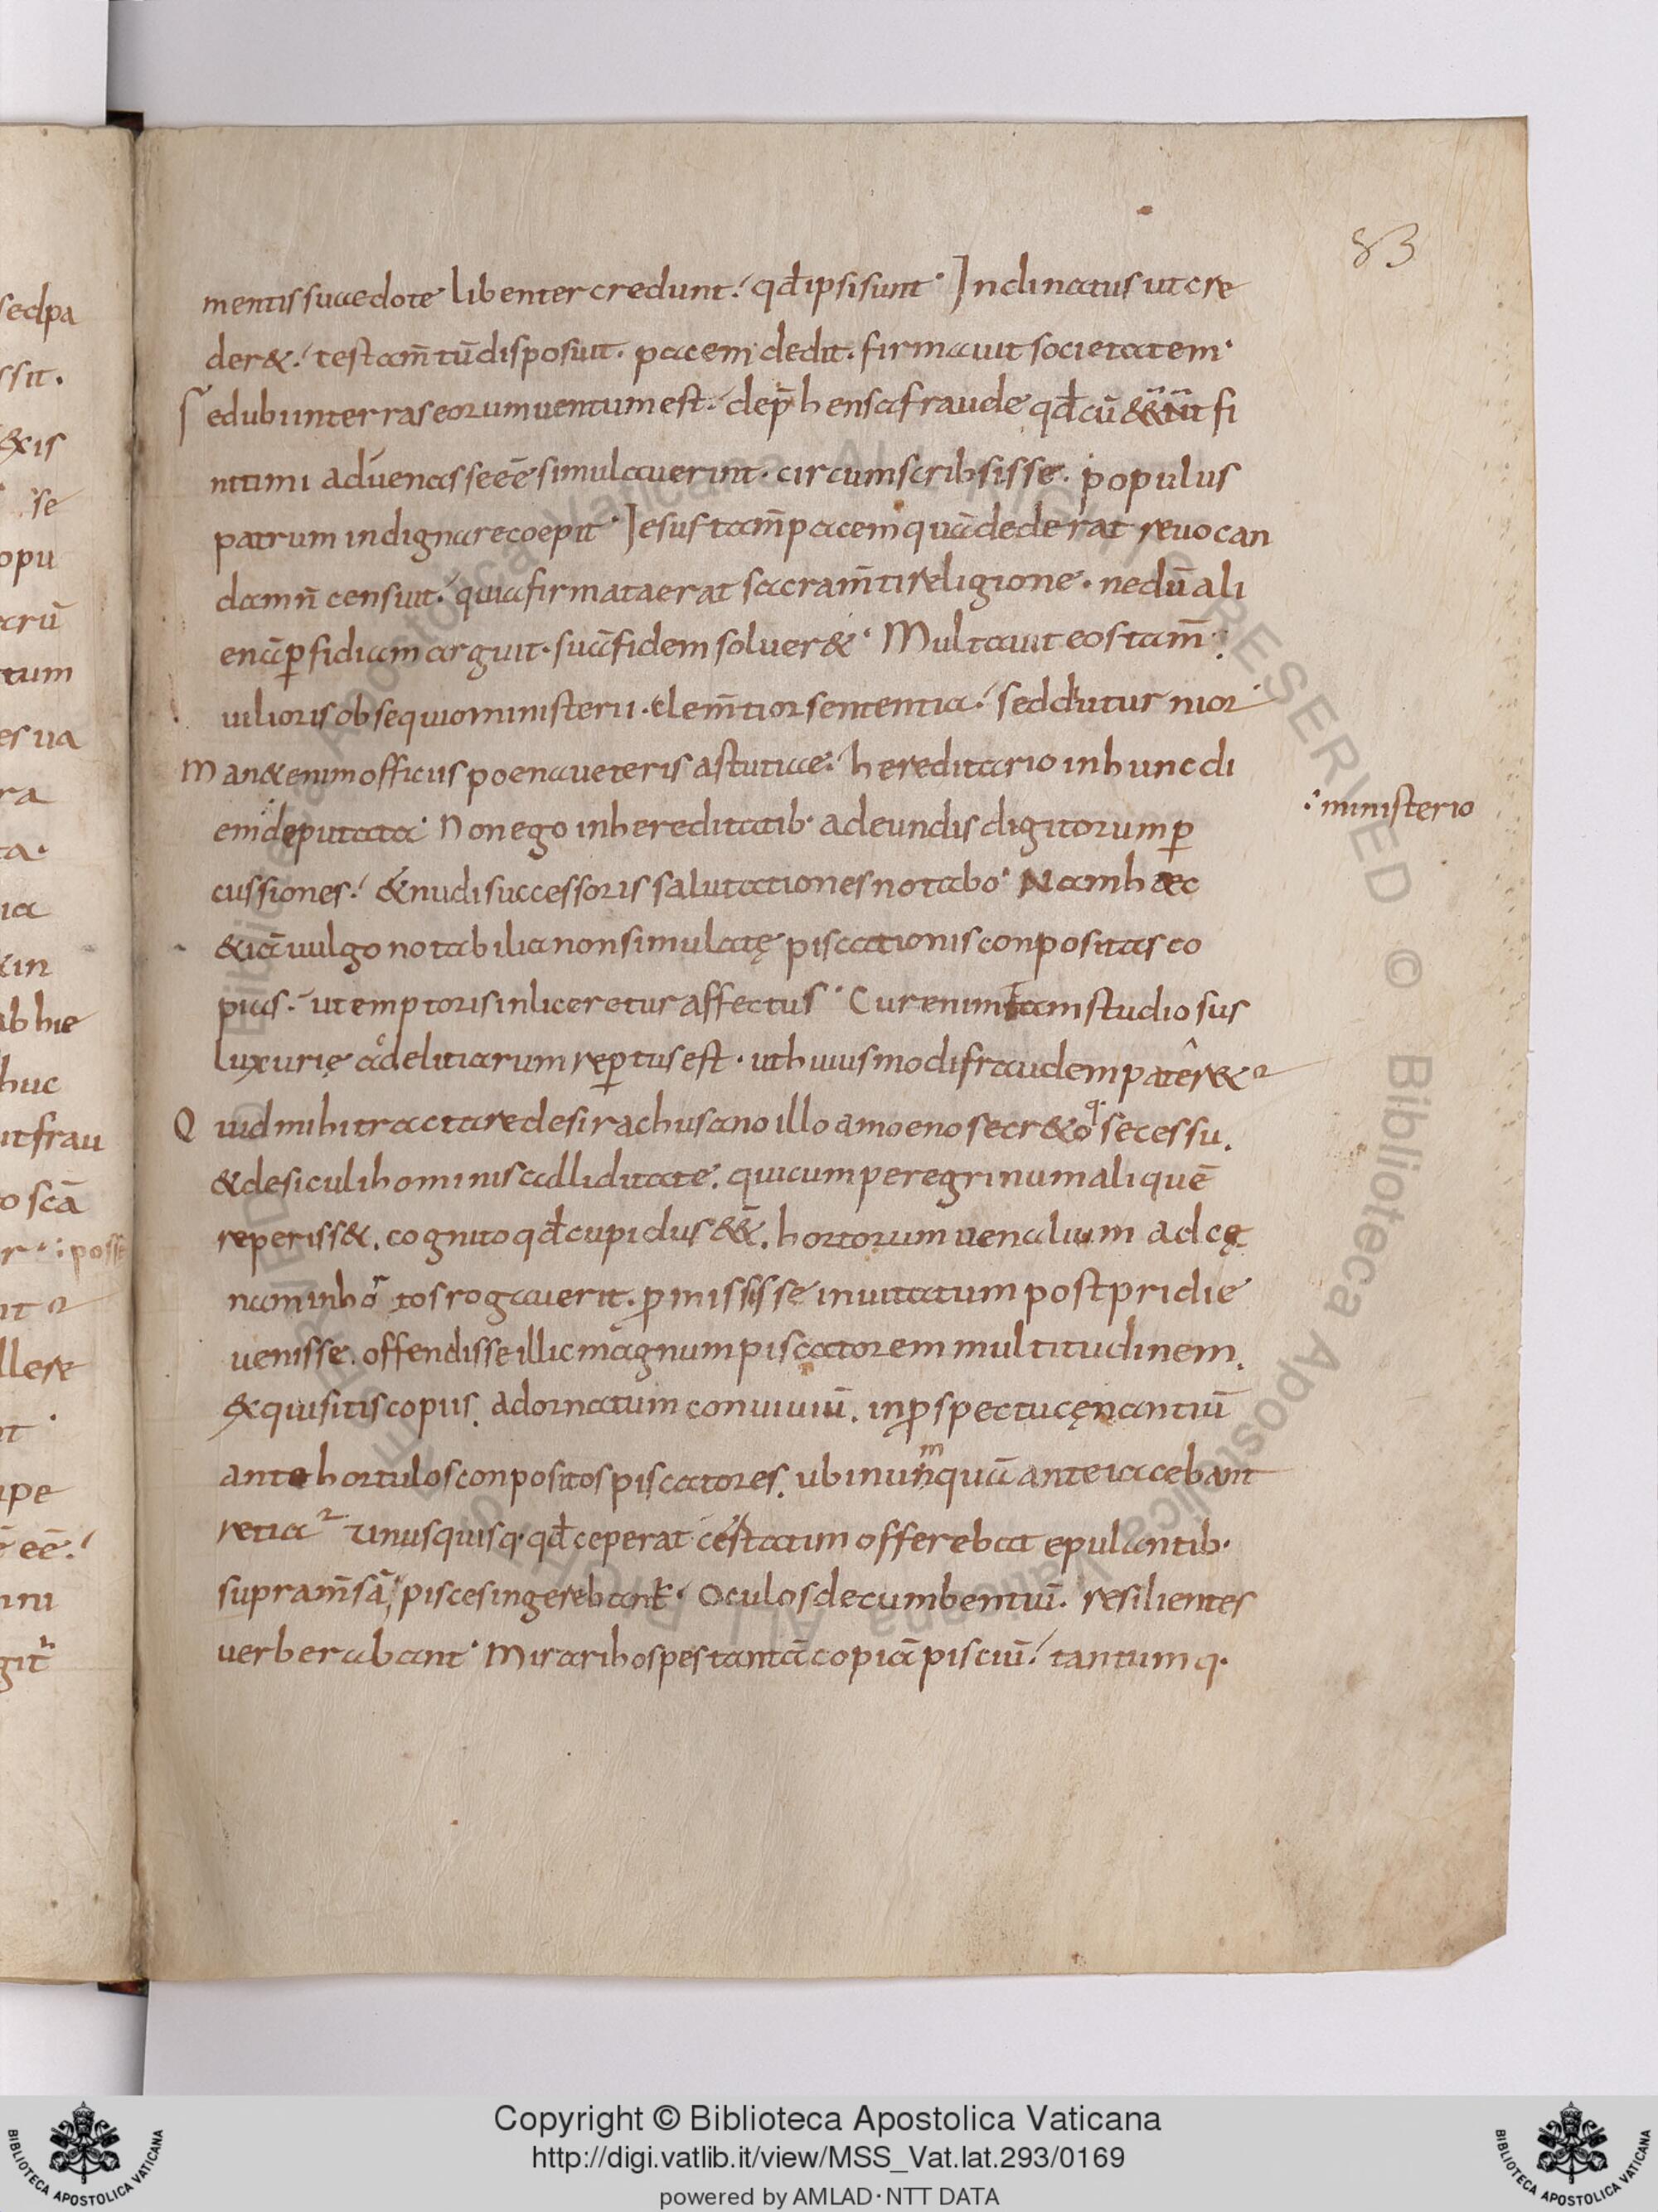 sedpa
ssit.
&is
se
opu
acrū
tum
es ua
ra
ta.
ia
ab hie
huc
ut frau
o scā
r posse
llere
ipe
ēē.
ini
git
83
mentis suae dote libenter credunt. qđ ipsi sunt. Inclinatus ut cre
der&. testam̄tū disposuit. pacem dedit. firmauit societatem.
Sed ubi in terras eorum uentum est. dep̄hensa fraude qđ cū fi
nitimi aduenas se ēē simulauerint. circumscribsisse. populus
patrum indignare coepit. Iesus tam̄ pacem quā dederat reuocan
dam n̄ censuit. quia firmata erat sacram̄ti religione. ne dū ali
enā ꝑfidiam arguit. suā fidem soluer&. Multauit eos tam̄
uilioris obsequio ministerii. clem̄tior sententia. sed diuturnior
Man& enim officiis poena ueteris astutiae. hereditario in hunc di
em deputata. Non ego in hereditatib. adeundis digitorum ꝑ
cussiones. & nudi successoris salutationes notabo. Nam haec
&iā uulgo notabilia non simulatę piscationis conpositas co
pias. ut emptoris inliceretur affectus. Cur enim tam studiosus
luxurię ac delitiarum reꝑtus est. ut huiusmodi fraudem pater&
Quid mihi tractare de sirachusano illo amoeno secr&oq. secessu.
& de siculi hominis calliditate. qui cum peregrinum aliquē
reperiss&. cognito qđ cupidus &. hortorum uenalium ad cę
nam in hortos rogauerit. promississe inuitatum post pridie
uenisse. offendisse illic magnum piscatorem multitudinem.
exquisitis copiis. adornatum conuiuiū. in ꝓspectu cęnantiū
ante hortulos conpositos piscatores. ubi numquā ante iacebant
retia Unusquisq. qđ ceperat certatim offerebat epulantib.
supra m̄sā pisces ingerebant. Oculos decumbentiū. resilientes
uerberabant. Mirari hospes tantā copiā pisciū. tantumq.
ministerio
© Biblioteca Apostolica Vaticana ALL RIGHTS RESERVED
Copyright © Biblioteca Apostolica Vaticana
http://digi.vatlib.it/view/MSS_Vat.lat.293/0169
powered by AMLAD·NTT DATA
BIBLIOTECA APOSTOLICA VATICANA
BIBLIOTECA APOSTOLICA VATICANA